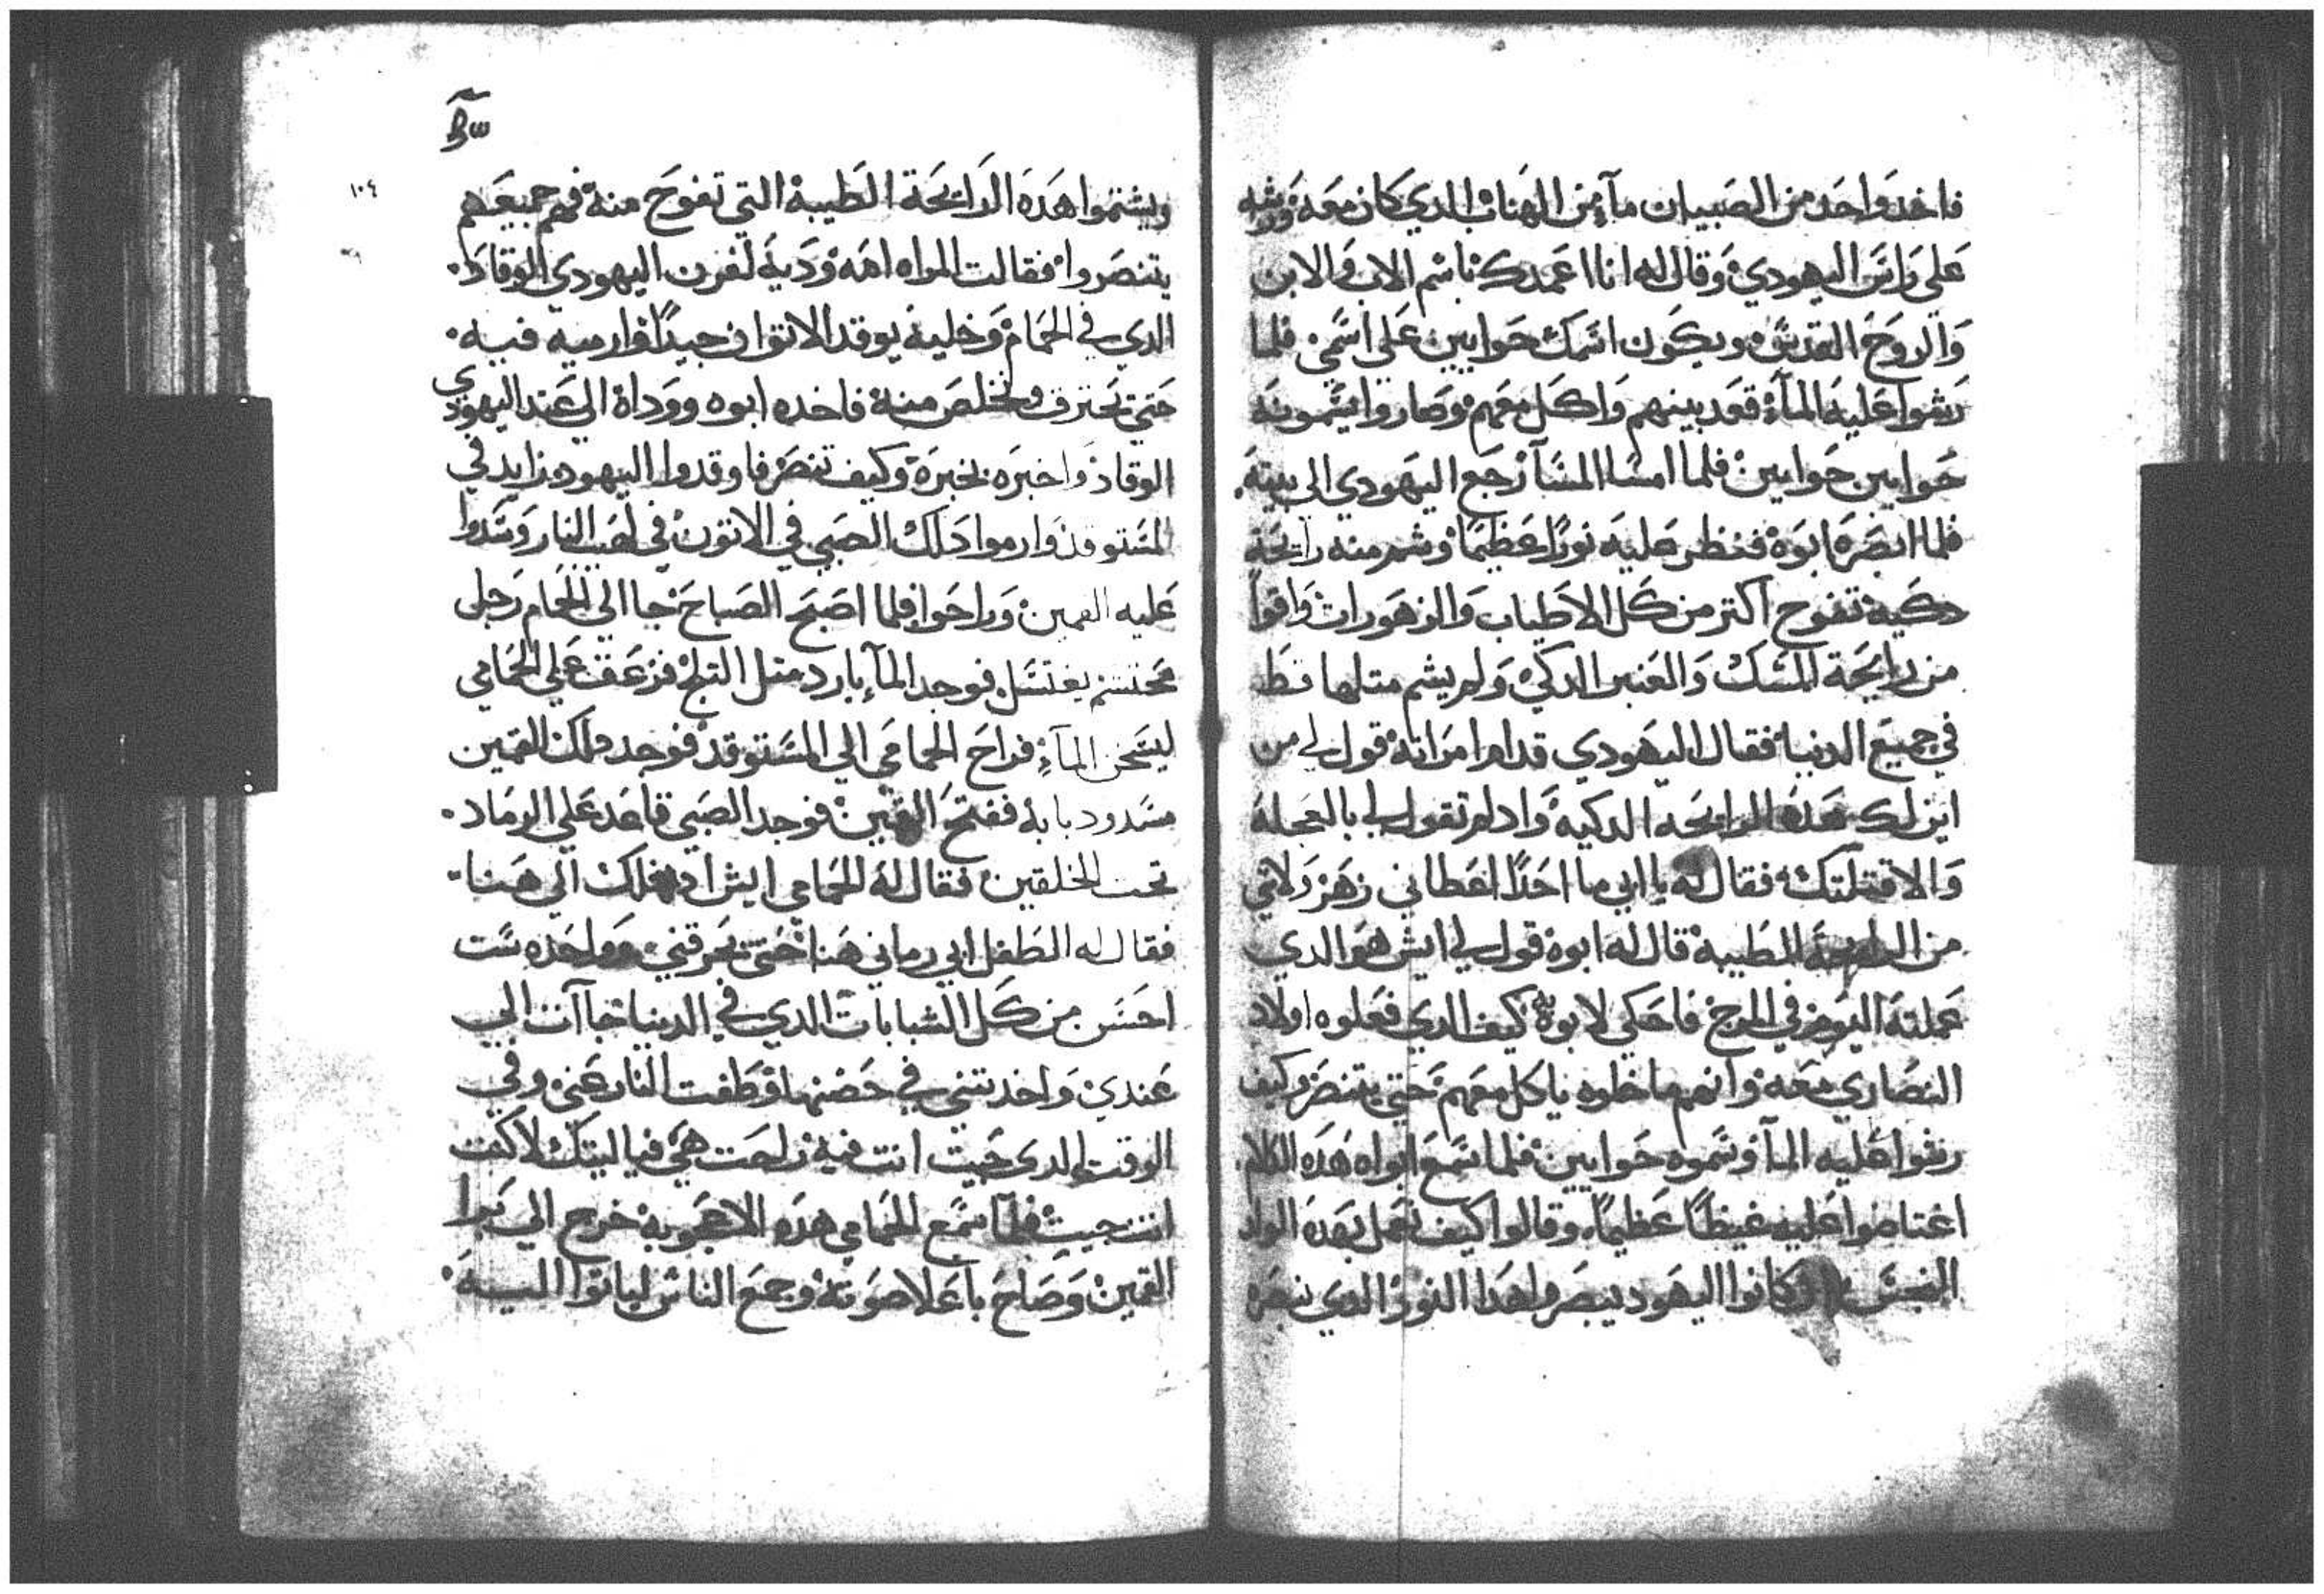 فاخد واحد من الصبيان مآء من الهناب الدي كان معه ورشه
علي راس اليهودي وقال له انا اعمدك باسم الاب والابن
والروح القدس ويكون اسمك حوابين علي اسمي فلما
رشوا عليه المآء قعد بينهم واكل معهم وصاروا يسمونه
حوابين حوابين فلما امسا المسآ رجع اليهودي الي بيته
فلما ابصره ابوه فنظر عليه نورا عظيما وشم منه رايحة
دكية تفوح اكتر من كل الاطياب والزهورات واقوا
من رايحة المسك والعنبر الدكي ولم يشم متلها قط
في جميع الدنيا فقال اليهودي قدام امراته قول لي من
اين لك هده الرايحه الدكيه وادا لم تقول لي بالعجلة
والا قتلتك فقال له يا ابي ما احدا اعطاني زهر ولاتي
من الرايحة الطيبة قال له ابوه قول لي ايش هو الدي
عملته اليوم في المرج فاحكي لابوه كيف الدي فعلوه اولاد
النصاري معه وانهم ما خلوه ياكل معهم حتي يتنصر وكيف
رشوا عليه المآ وسموه حوابين فلما سمع ابواه هده الكلام
اغتاضوا عليه غيظا عظيما وقالوا كيف نعمل بهده الولد
النجس وكانوا اليهود يبصروا هدا النور الدي ينبعره
١٠٤
ويشتموا هده الرايحة الطيبة التي تفوح منه فهم جميعهم
يتنصروا فقالت المراه امه وديه لفرن اليهودي الوقاد
الدي في الحمام وخليه يوقد الاتون جيدا وارميه فيه
حتي تحترق وتخلص منه فاخده ابوه ووداه الي عند اليهودي
الوقاد واخبره بخبره وكيف تنصر فاوقدوا اليهود زايد في
المستوقد وارموا دلك الصبي في الاتون في لهيب النار وسدوا
عليه القمين وراحوا فلما اصبح الصباح جا الي الحمام رجل
محتشم يغتسل فوجد المآء بارد متل التلج فزعق علي الحمامي
ليسخن المآء فراح الحمامي الي المستوقد فوجد دلك القمين
مسدود بابه ففتح القمين فوجد الصبي قاعد علي الرماد
تحت الخلقين فقال له الحمامي ايش ادخلك الي هنا
فقال له الطفل ابي رماني هنا حتي يحرقني وواحده ست
احسن من كل الشبابات الدي في الدنيا جاآت الي
عندي واخدتني في حضنها وطفت النار عني وفي
الوقت الدي جيت انت فيه راحت هي فيا ليتك لا كنت
انت جيت فلما سمع الحمامي هده الاعجوبه خرج الي برا
القمين وصاح باعلا صوته وجمع الناس لياتوا اليه